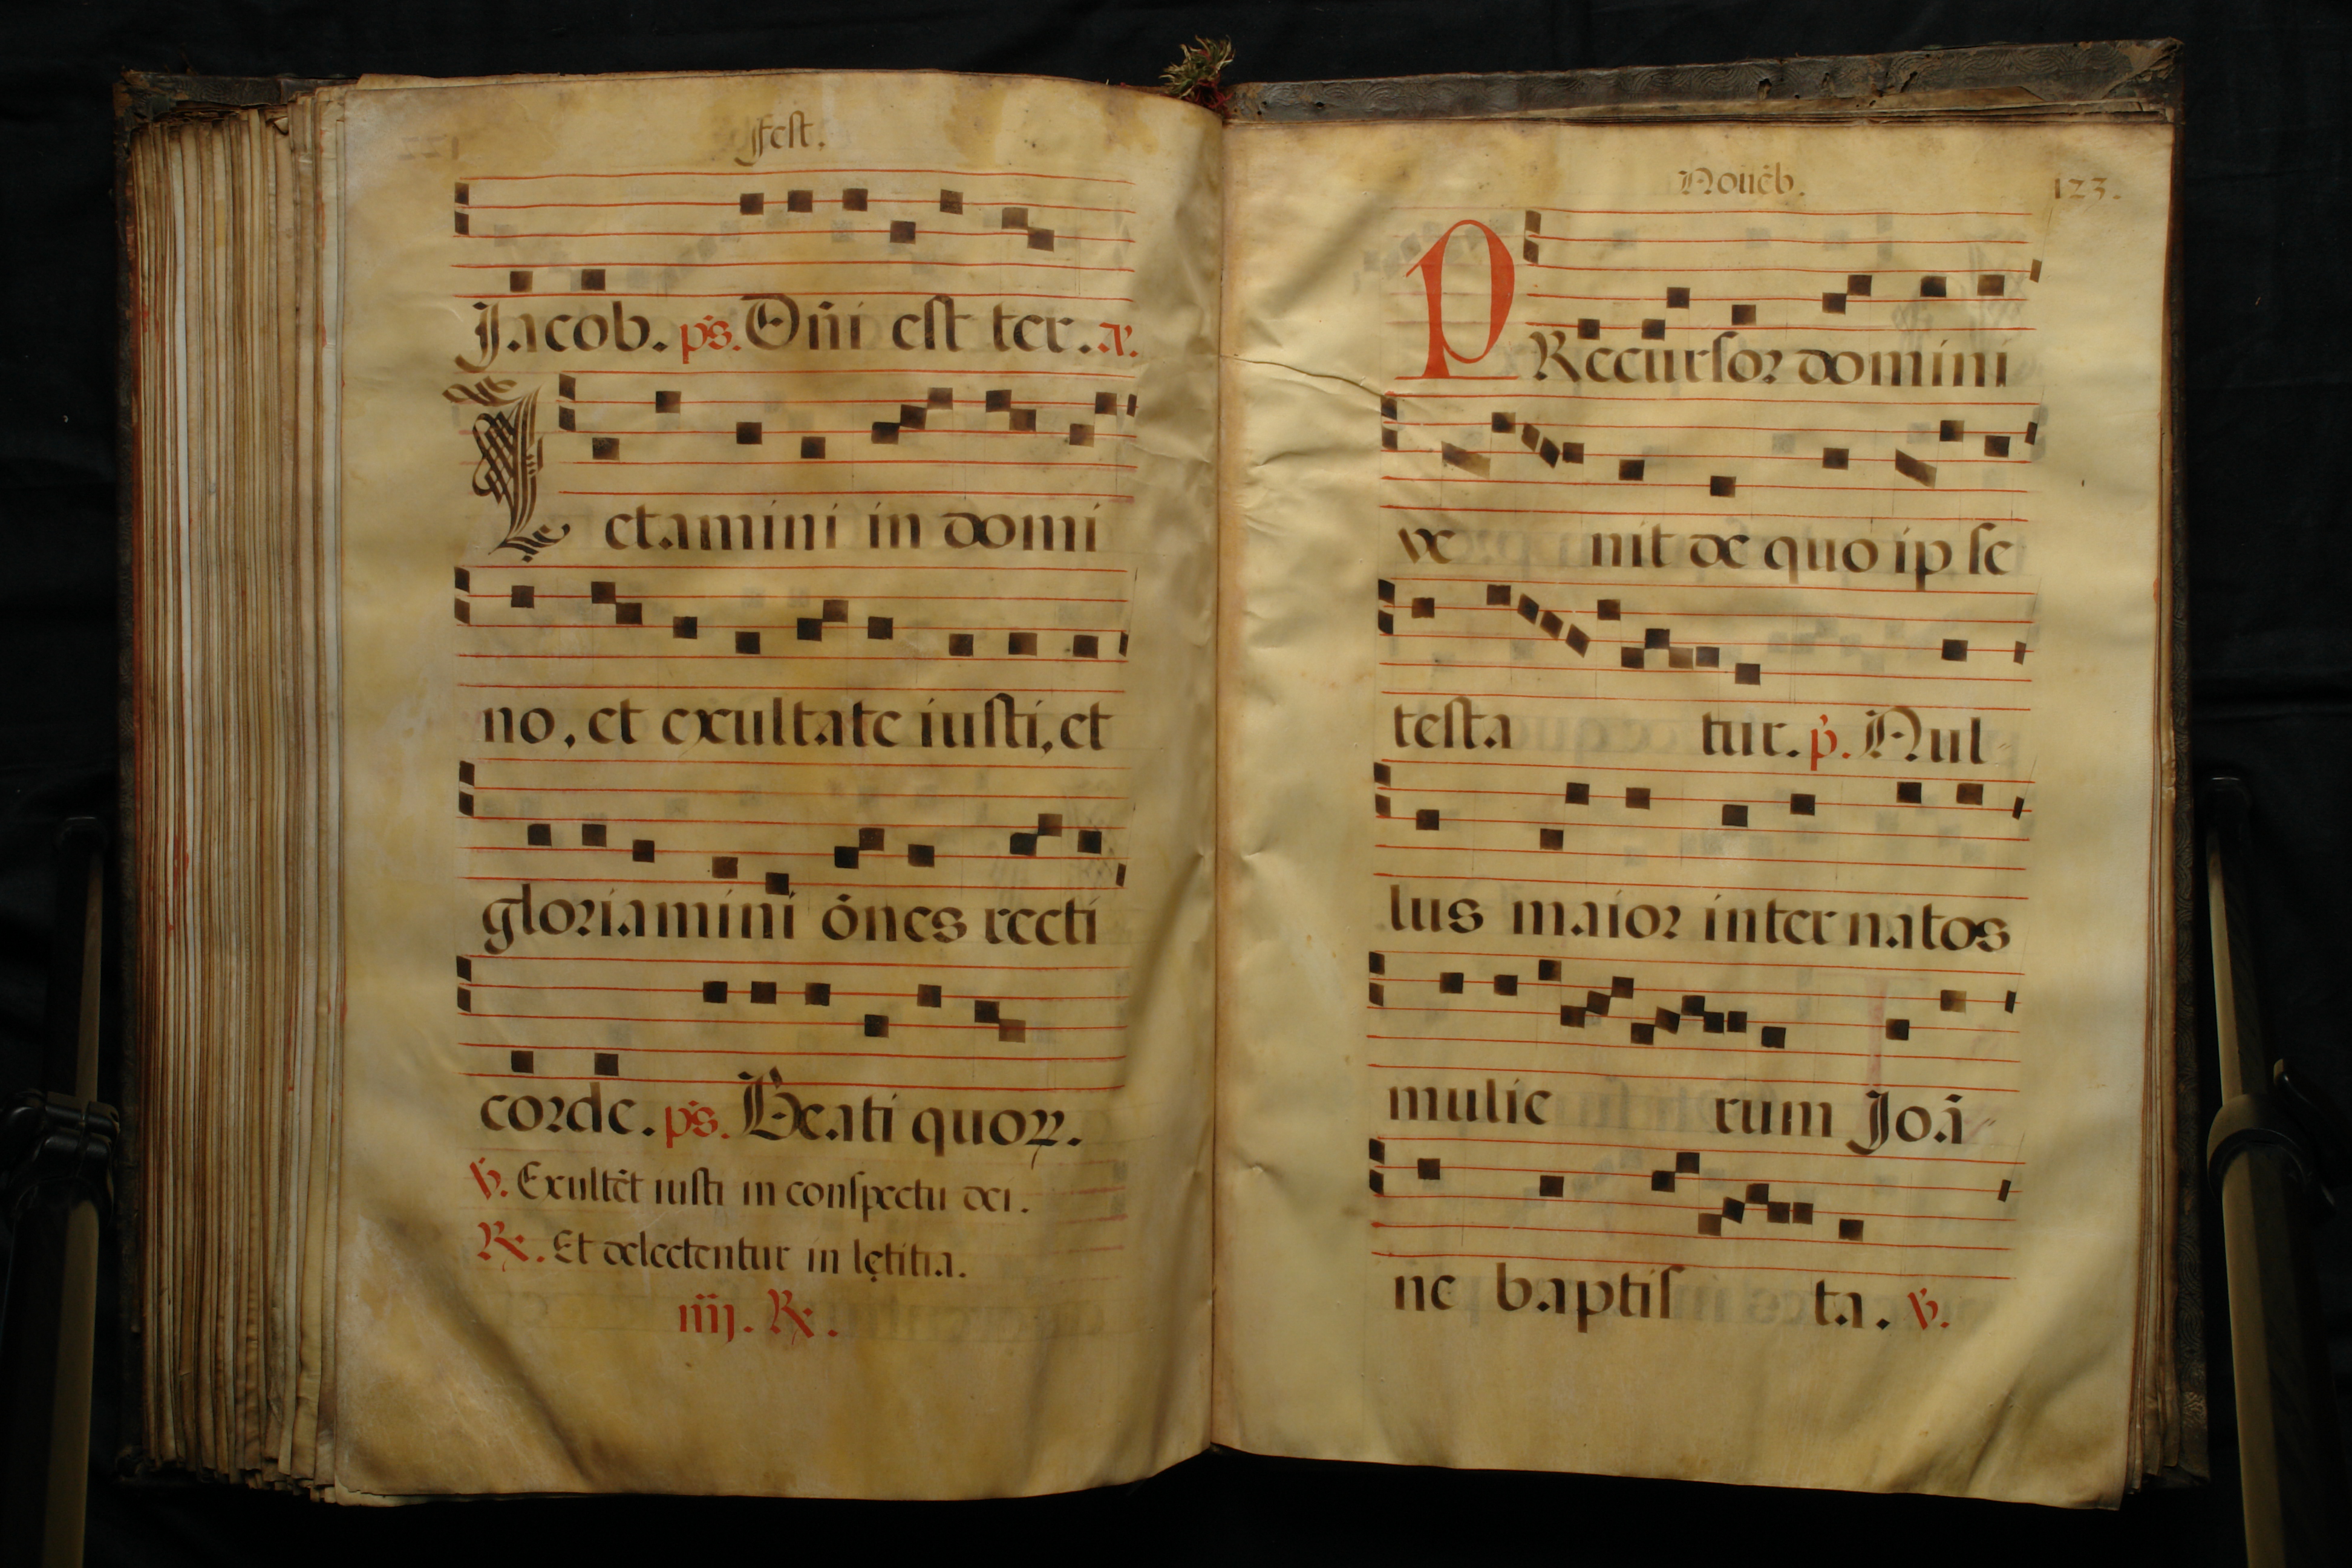 Fest.
Jacob. ps. Dñi est ter. a.
Letamini in domi
no, et exultate iusti, et
gloriamini õnes recti
corde. ps. Beati quoꝝ.
℣. Exultẽt iusti in conspectu dei.
℟. Et delectentur in lętitia.
iiij. ℟.
Nouẽb. 123.
PRecursor domini
ve nit de quo ip se
testa tur. p. Nul
lus maior inter natos
mulie rum Joã
ne baptis ta. ℣.